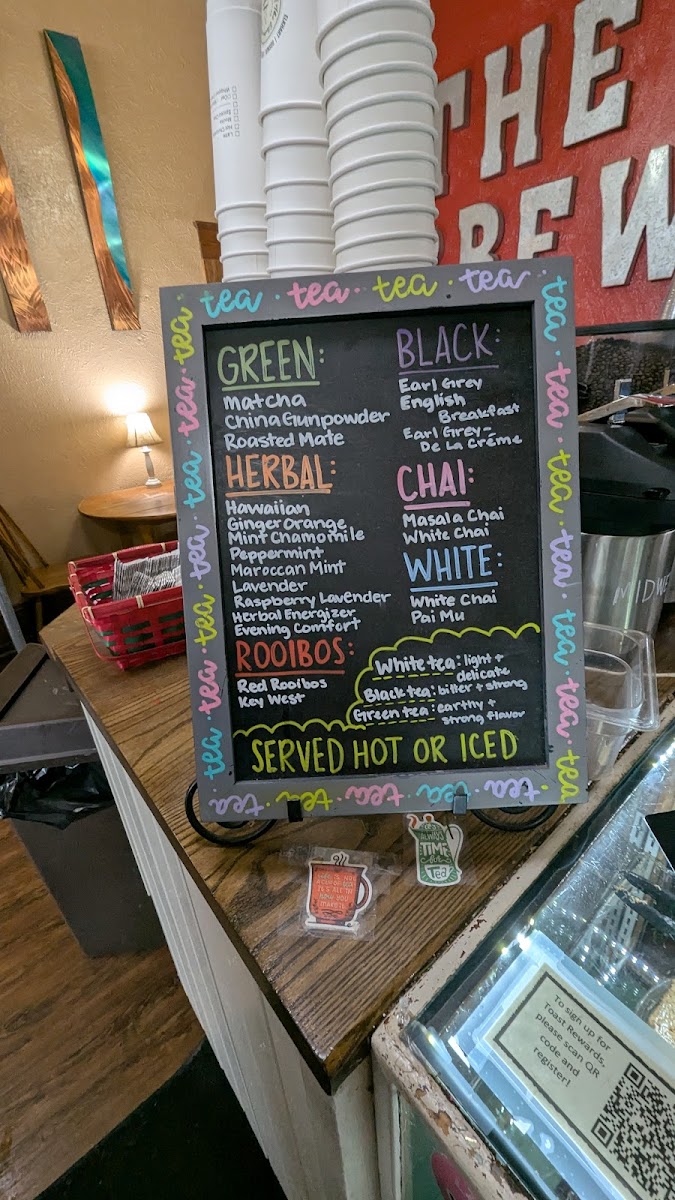 THE
BREW
tea · tea · tea · tea
tea · tea · tea · tea · tea · tea · tea
tea · tea · tea · tea · tea · tea · tea
GREEN:
Matcha
China Gunpowder
Roasted Mate
HERBAL:
Hawaiian
Ginger Orange
Mint Chamomile
Peppermint
Maroccan Mint
Lavender
Raspberry Lavender
Herbal Energizer
Evening Comfort
ROOIBOS:
Red Rooibos
Key West
BLACK:
Earl Grey
English
Breakfast
Earl Grey-
De La Créme
CHAI:
Masala Chai
White Chai
WHITE:
White Chai
Pai Mu
White tea: light +
delicate
Black tea: bitter + strong
Green tea: earthy +
strong flavor
SERVED HOT OR ICED
tea · tea · tea · tea · tea
MIDWE
ALWAYS
TIME
FOR
Tea
To sign up for
Toast Rewards,
please scan QR
code and
register!